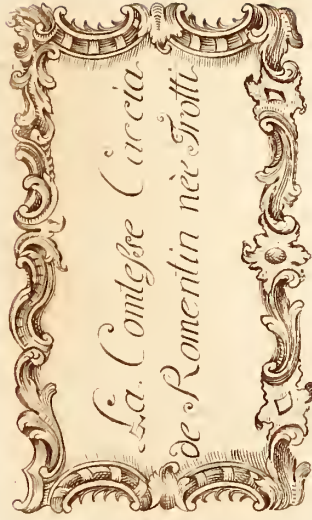 La Comtesse Caccia
de Romentin nèe Trotti